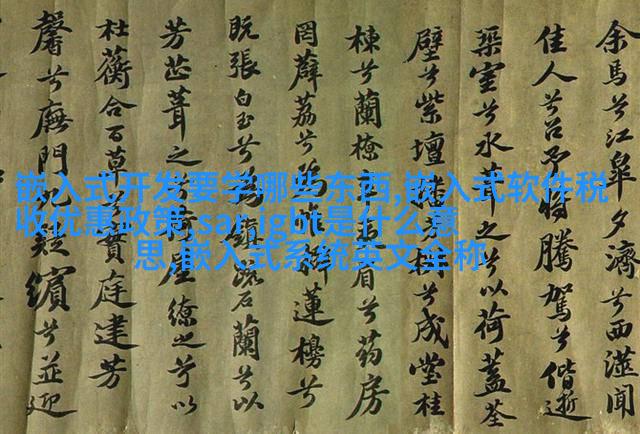 嵌入式开发要学哪些东西,嵌入式软件税
收优惠政策,sar,igbt是什么意
思,嵌入式系统英文全称
余馬兮江皋夕濟兮西澨聞
佳人兮召予將騰駕兮偕逝
築室兮水中葺之以荷蓋荃
壁兮紫壇芳兮成堂桂
棟兮蘭橑眉兮药房
罔薜荔兮為蓮櫋兮
既張白玉兮為鎮疏石蘭兮以
芳芷葺之屋繚之兮以
杜蘅合百草兮實庭建芳
馨兮廡門九疑繽兮並迎